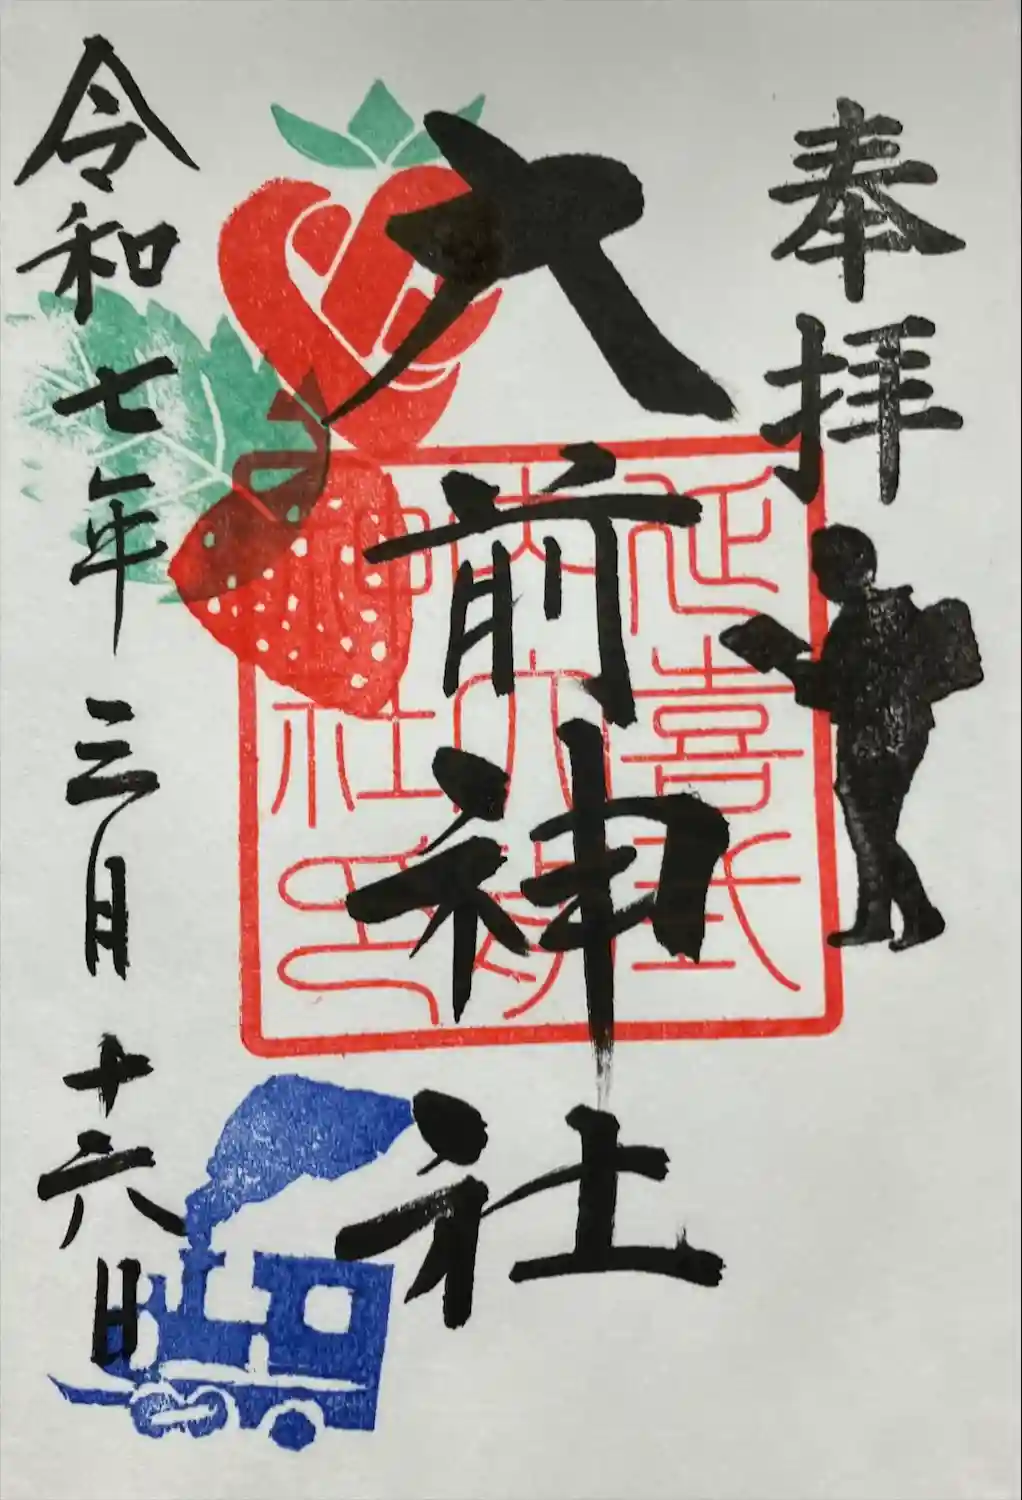 奉拝
大前神社
延喜式
内大前
神社印
令和七年三月十六日